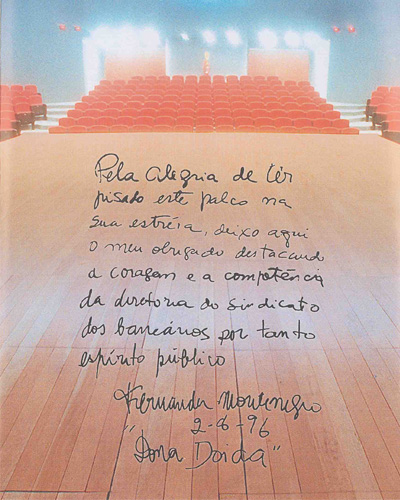 Pela alegria de ter
pisado este palco na
sua estréia, deixo aqui
o meu obrigado destacando
a coragem e a competência
da diretoria do sindicato
dos bancários por tanto
espírito público
Fernanda Montenegro
2-6-96
"Dona Doida"